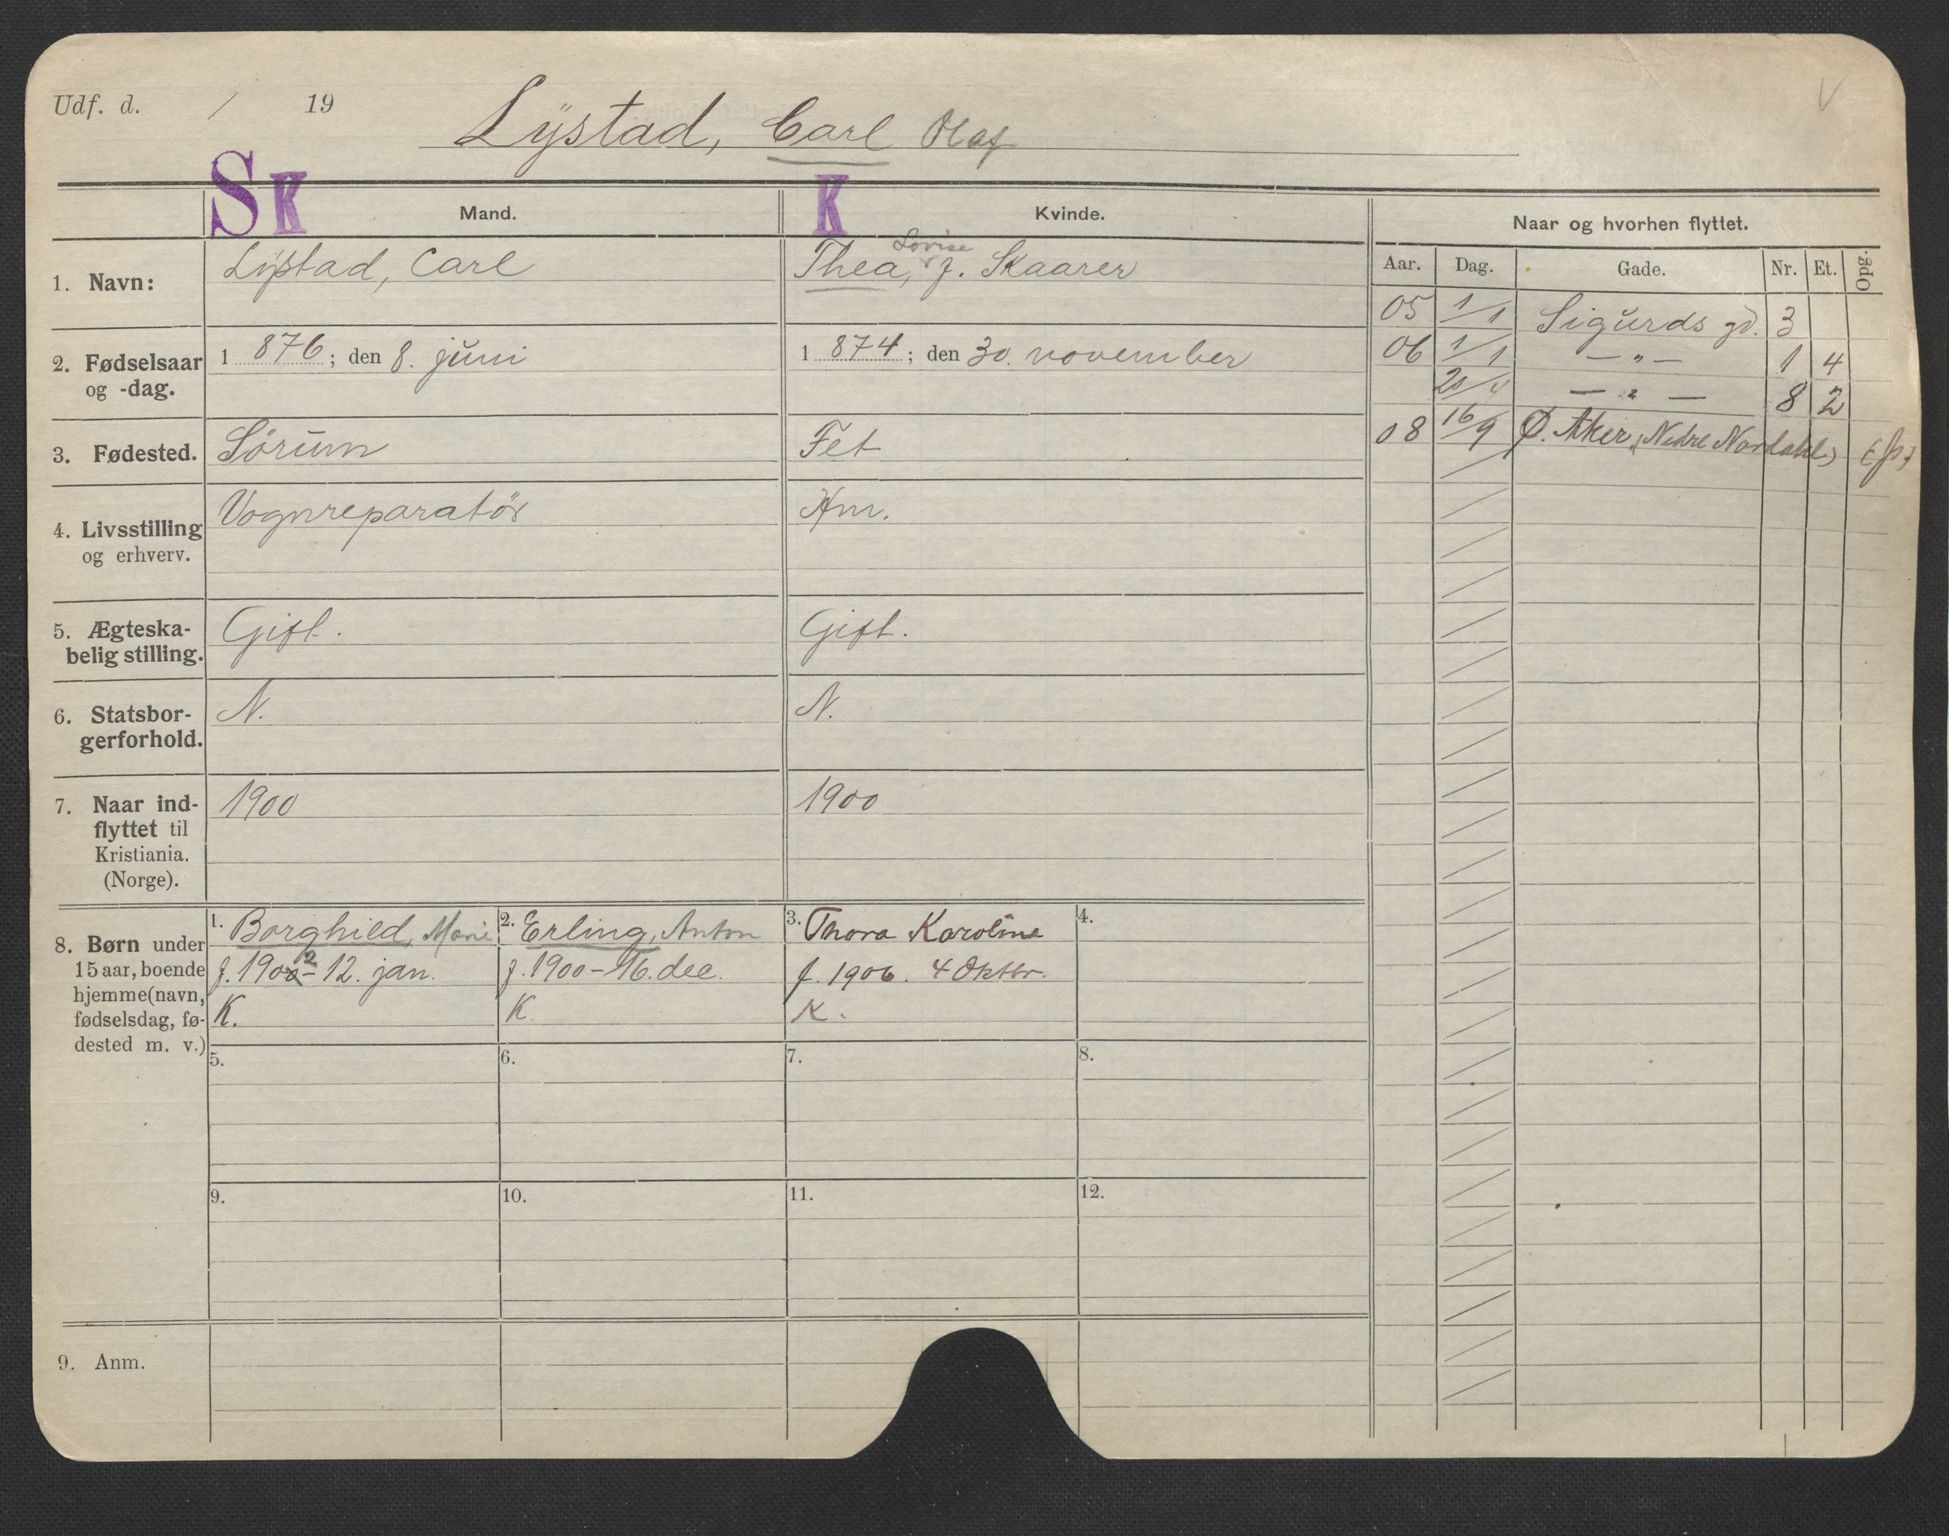 Udf. d. / 19
Lÿstad, Carl Olaf
S K
K
Mand.
Kvinde.
Naar og hvorhen flyttet.
Aar. Dag. Gade. Nr. Et. Opg.
1. Navn:
Lÿstad, Carl
Lovise
Thea, f. Skaarer
2. Fødselsaar
og -dag.
1 876; den 8. juni
1 874; den 30. november
3. Fødested.
Sörum
Fet
4. Livsstilling
og erhverv.
Vognreparatør
Hm.
5. Ægteska-
belig stilling.
Gift.
Gift.
6. Statsbor-
gerforhold.
N.
N.
7. Naar ind-
flyttet til
Kristiania.
(Norge).
1900
1900
8. Børn under
15 aar, boende
hjemme (navn,
fødselsdag, fø-
dested m. v.)
1. Borghild, Marie
f. 1902 - 12. jan.
K.
2. Erling, Anton
f. 1900 - 16. dec.
K.
3. Thora Karoline
f. 1906. 4 Oktbr.
K.
4.
5.
6.
7.
8.
9.
10.
11.
12.
9. Anm.
05 1/1 Sigurds gd. 3
06 1/1 — " — 1 4
— " — 8 2
08 16/9 Ø. Aker, (Nedre Nordahl)